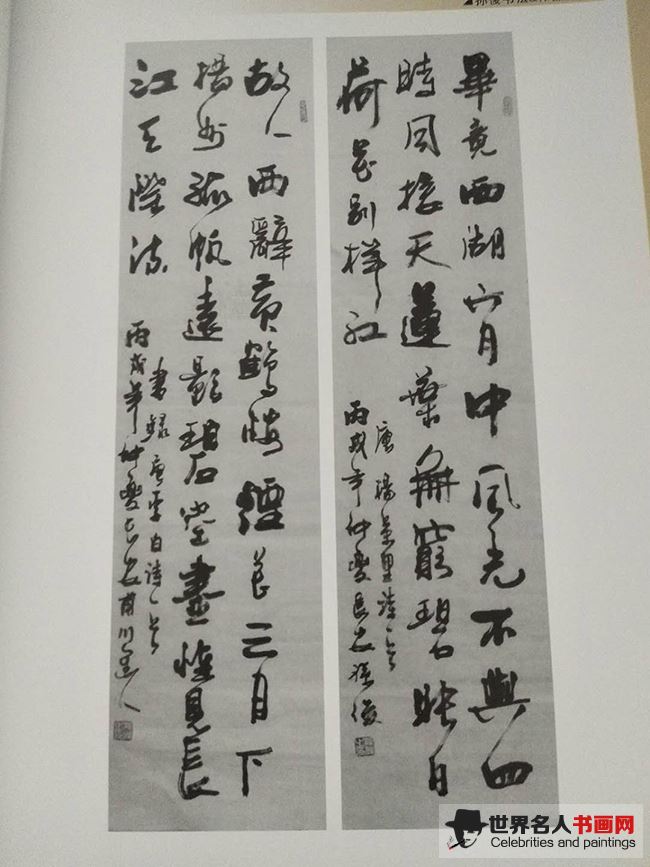 畢竟西湖六月中風光不與四
時同接天蓮葉無窮碧映日
荷花别樣紅
唐楊萬里詩一首
丙戌年仲夏長安孫俊
故人西辭黄鶴樓煙花三月下
揚州孤帆遠影碧空盡惟見長
江天際流
書録唐李白詩一首
丙戌年仲夏長安
世界名人书画网
Celebrities and paintings